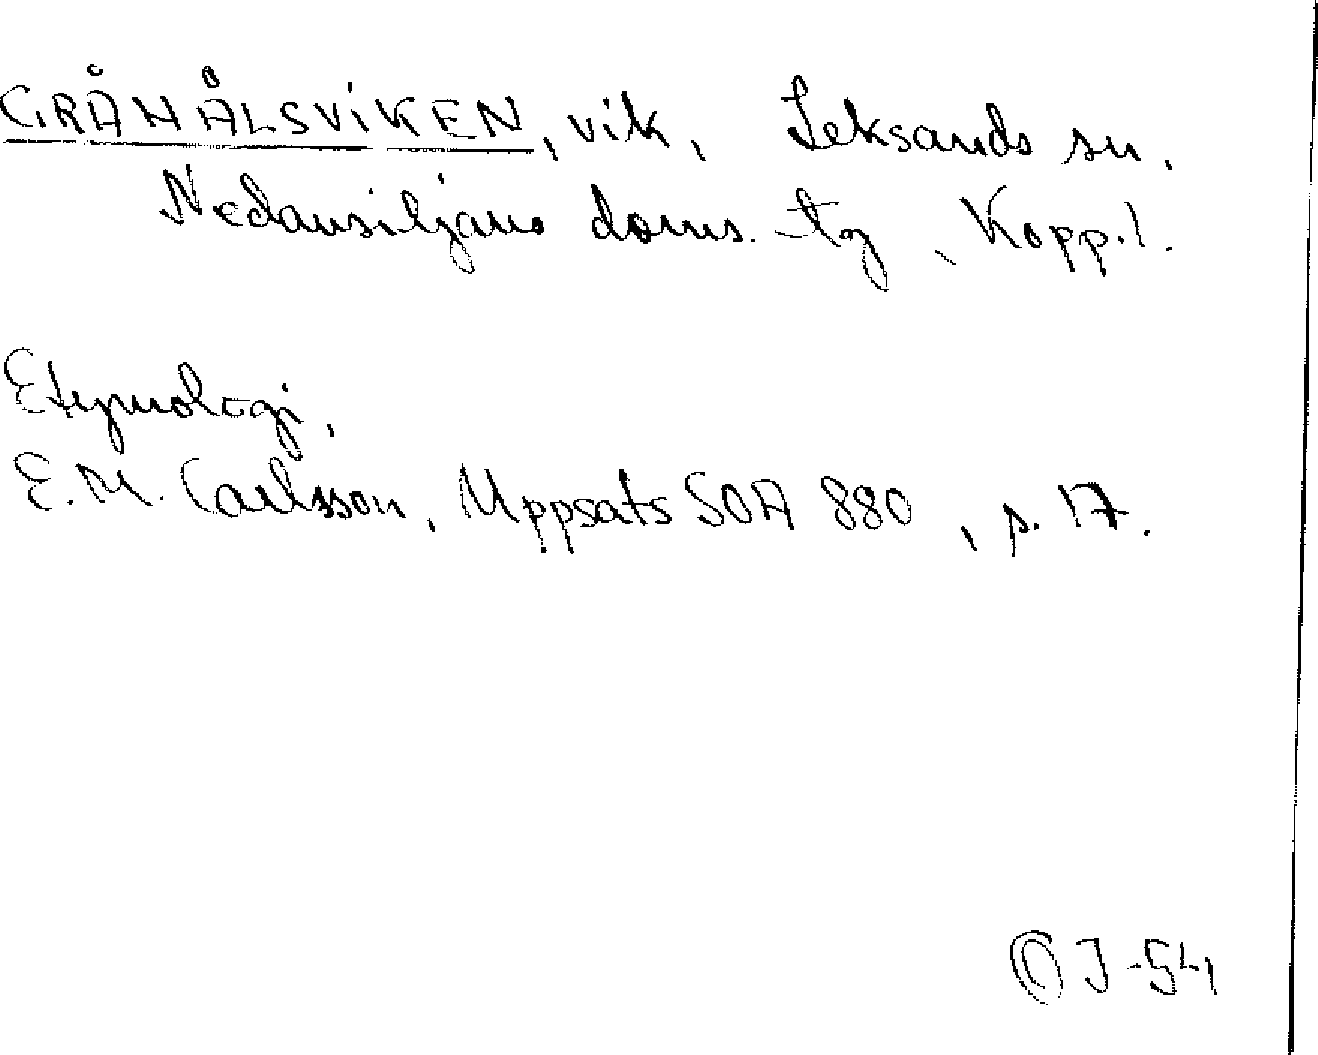 GRÅNÅLSVIKEN, vik, Leksands sn,
Nedansiljans doms. tg, Kopp.l.
Etymologi,
E.M. Carlsson, Uppsats SOA 880, s. 17.
J-54